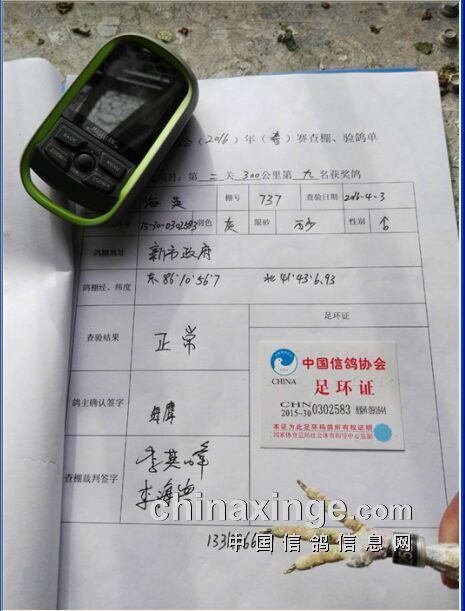 会(2016)年(春)赛查棚、验鸽单
项目:第二关300公里第九名获奖鸽
棚号 737 查验日期 2016-4-3
15-30-0302583 羽色 灰 眼砂 砂 性别
鸽棚地址 新市政府
鸽棚经、纬度 东86°10′56″7 北41°43′6.93
足环证
查验结果 正常
鸽主确认签字
查棚裁判签字 李英峰
李海
中国信鸽协会
CHINA 足环证
CHN
2015-30 0302583
本证为此足环鸽所有权证明
国家体育总局社会体育指导中心监制
MENU
chinaxinge.com
中国信鸽信息网